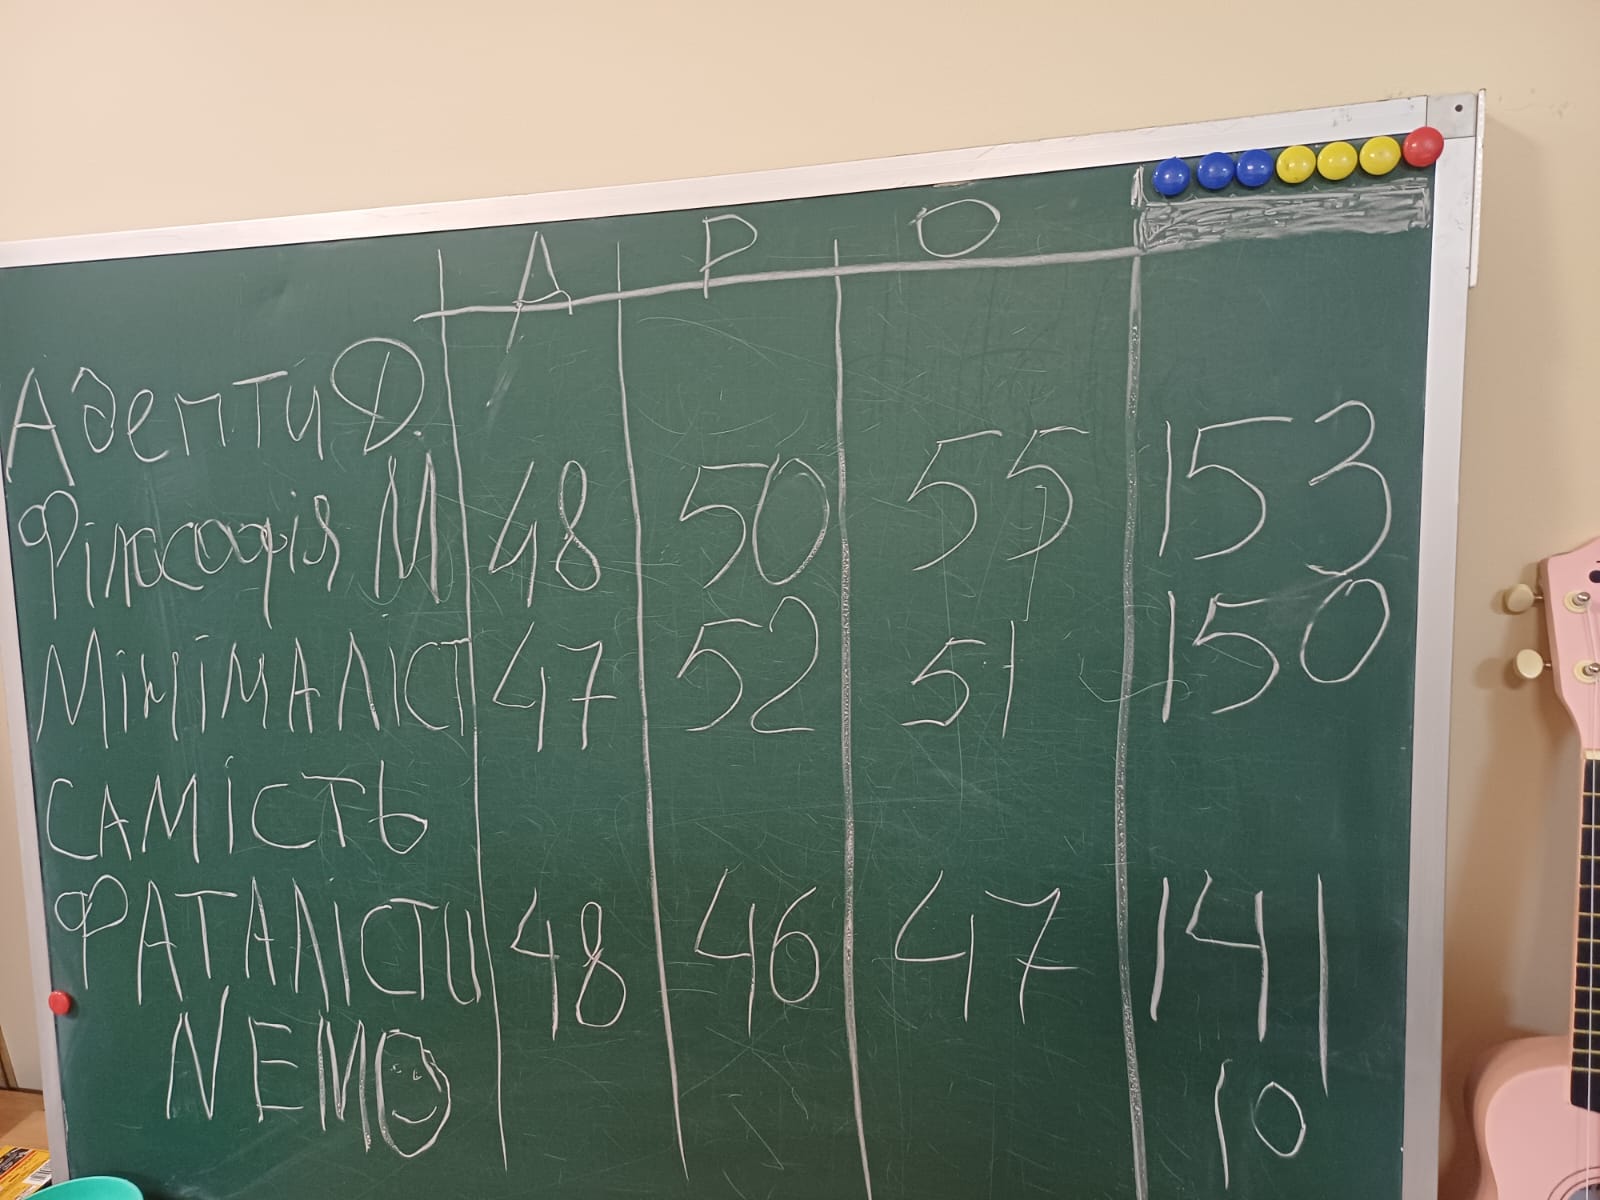 А Р О
Адепти Д.
Філософія М 48 50 55 153
МінімАліст 47 52 51 150
САМІСТЬ
ФАТАЛІСТИ 48 46 47 141
NEMO 10